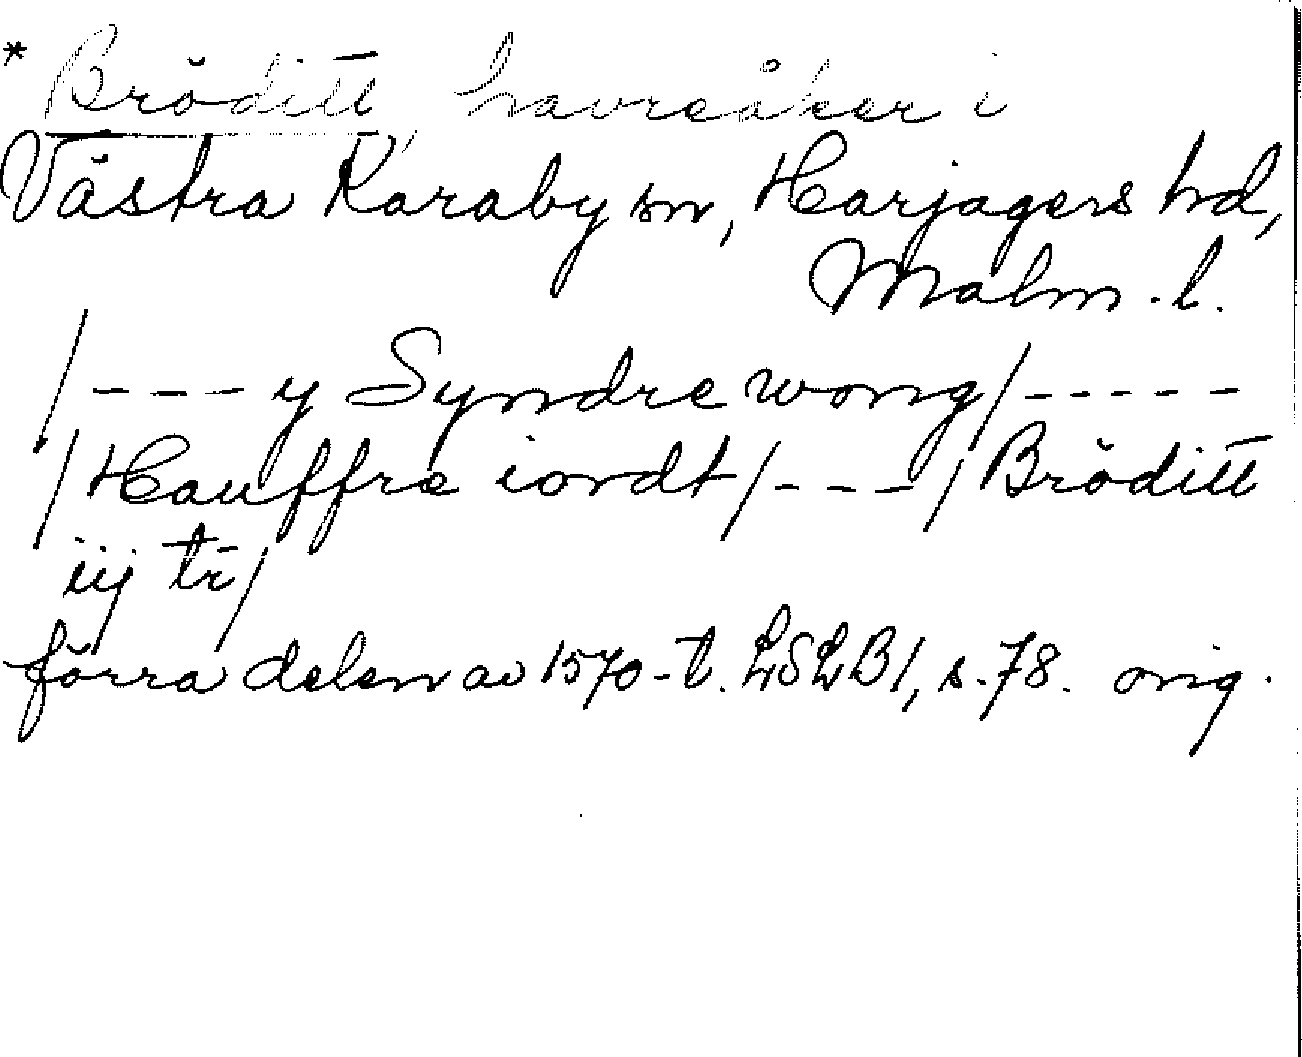 * Bröditt, havreåker i
Västra Karaby sn, Harjagers hd,
Malm. l.
/ - - - y Syndre wong / - - - - -
/ Hauffre iordt / - - - / Bröditt
iij tr /
förra delen av 1570-t. LSLB1, s. 78. orig.